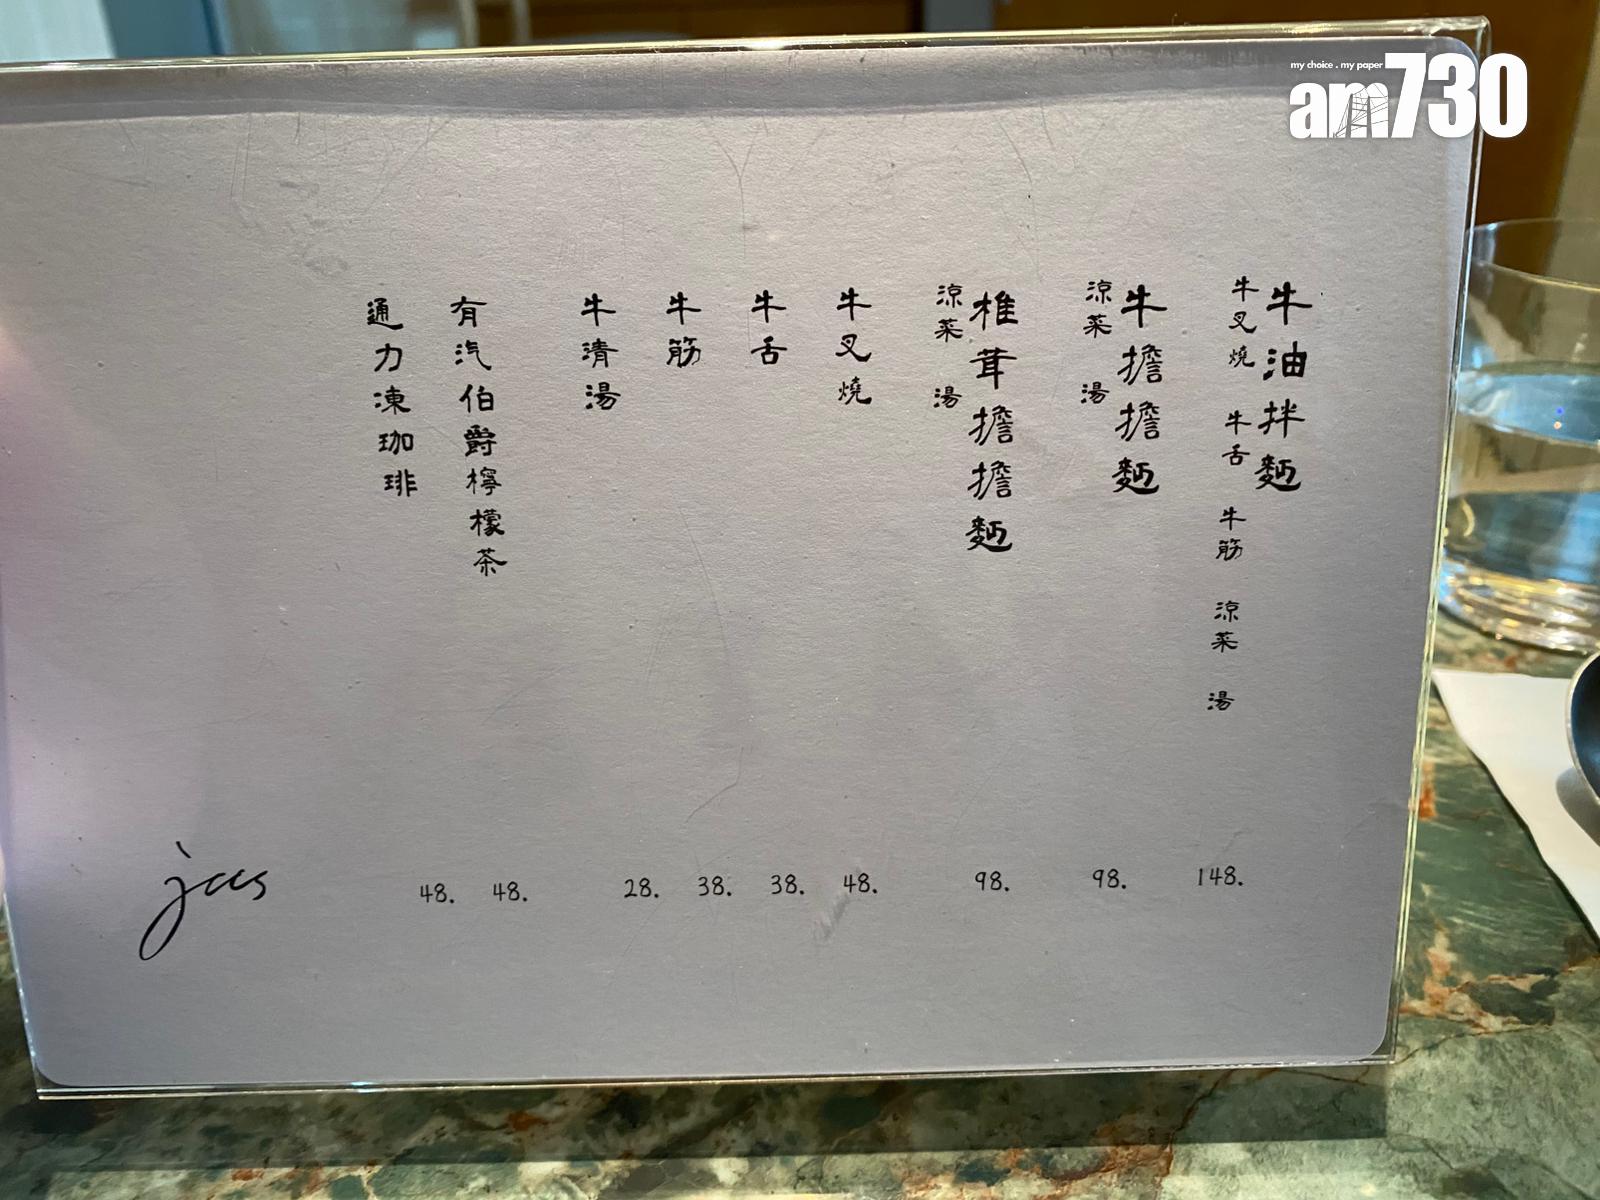 my choice . my paper
am730
牛油拌麪
牛叉燒 牛舌 牛筋 涼菜 湯
148.
牛擔擔麪
涼菜 湯
98.
椎茸擔擔麪
涼菜 湯
98.
牛叉燒
48.
牛舌
38.
牛筋
38.
牛清湯
28.
有汽伯爵檸檬茶
48.
通力凍珈琲
48.
jas